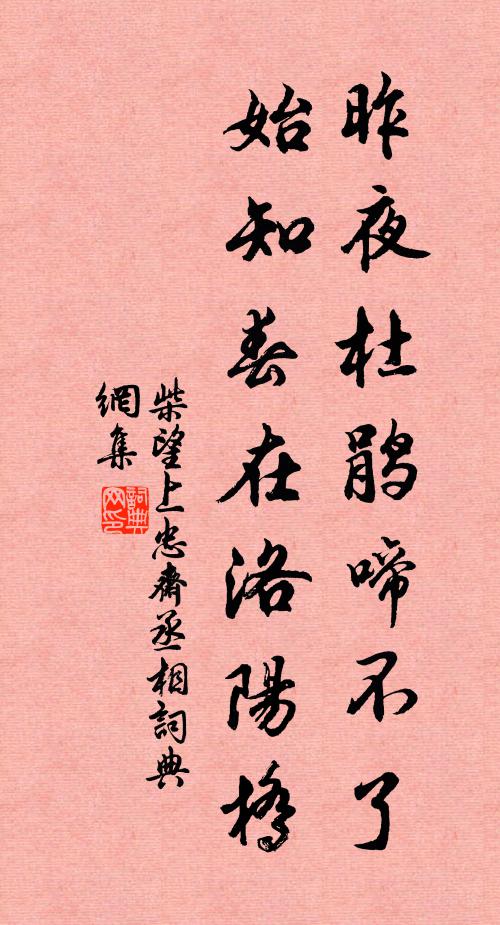 昨夜杜鹃啼不了
始知春在洛陽橋
柴望上忠齋丞相詞典
網集
詞典
网印